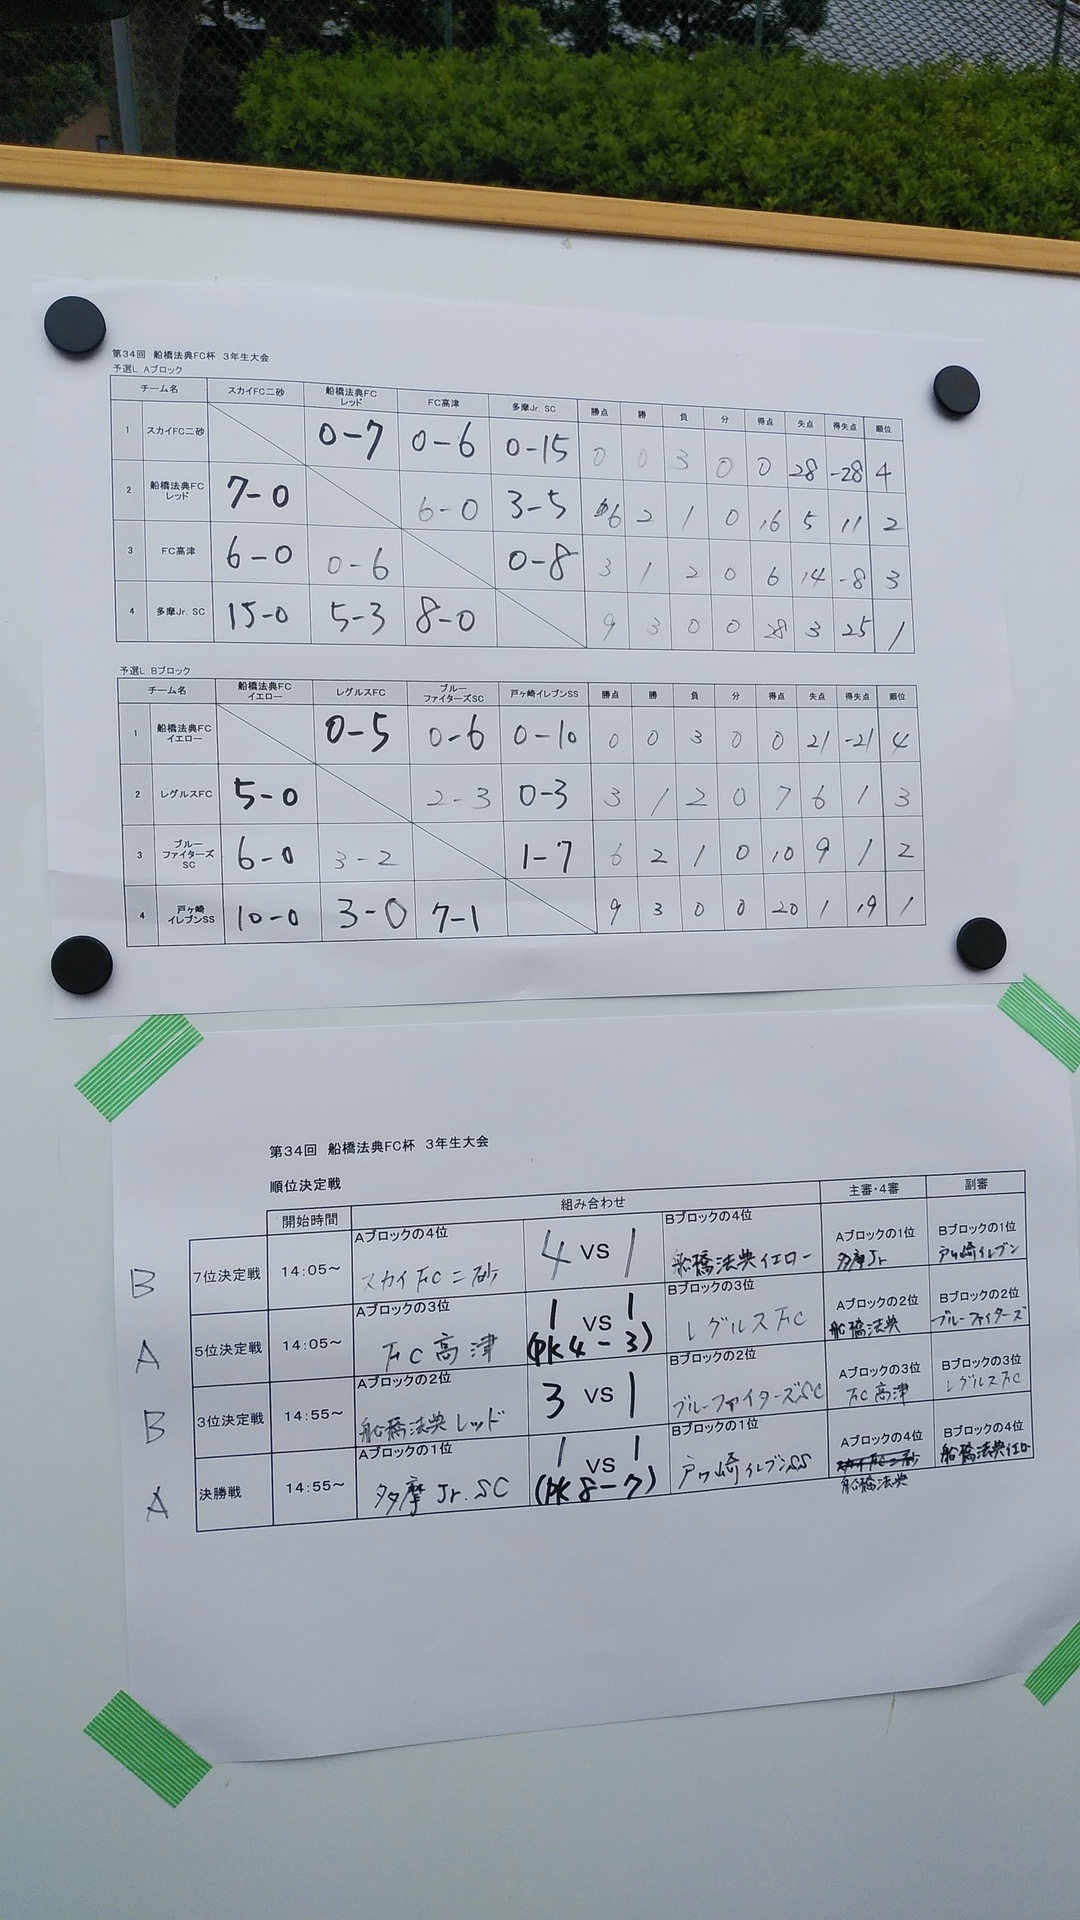 第34回 船橋法典FC杯 3年生大会
予選L Aブロック
チーム名 スカイFC二砂 船橋法典FC レッド FC高津 多摩Jr. SC 勝点 勝 負 分 得点 失点 得失点 順位
1 スカイFC二砂 0-7 0-6 0-15 0 0 3 0 0 28 -28 4
2 船橋法典FC レッド 7-0 6-0 3-5 6 2 1 0 16 5 11 2
3 FC高津 6-0 0-6 0-8 3 1 2 0 6 14 -8 3
4 多摩Jr. SC 15-0 5-3 8-0 9 3 0 0 28 3 25 1
予選L Bブロック
チーム名 船橋法典FC イエロー レグルスFC ブルー ファイターズSC 戸ヶ崎イレブンSS 勝点 勝 負 分 得点 失点 得失点 順位
1 船橋法典FC イエロー 0-5 0-6 0-10 0 0 3 0 0 21 -21 4
2 レグルスFC 5-0 2-3 0-3 3 1 2 0 7 6 1 3
3 ブルー ファイターズ SC 6-0 3-2 1-7 6 2 1 0 10 9 1 2
4 戸ヶ崎 イレブンSS 10-0 3-0 7-1 9 3 0 0 20 1 19 1
第34回 船橋法典FC杯 3年生大会
順位決定戦
開始時間 組み合わせ 主審・4審 副審
Aブロックの4位 Bブロックの4位 Aブロックの1位 Bブロックの1位
B 7位決定戦 14:05～ スカイFC二砂 4 VS 1 船橋法典イエロー 多摩Jr 戸ヶ崎イレブン
Aブロックの3位 Bブロックの3位 Aブロックの2位 Bブロックの2位
A 5位決定戦 14:05～ FC高津 1 VS 1 (PK4-3) レグルスFC 船橋法典 ブルーファイターズ
Aブロックの2位 Bブロックの2位 Aブロックの3位 Bブロックの3位
B 3位決定戦 14:55～ 船橋法典レッド 3 VS 1 ブルーファイターズSC FC高津 レグルスFC
Aブロックの1位 Bブロックの1位 Aブロックの4位 Bブロックの4位
A 決勝戦 14:55～ 多摩Jr.SC 1 VS 1 (PK8-7) 戸ヶ崎イレブンSS スカイFC二砂 船橋法典イエロー
船橋法典